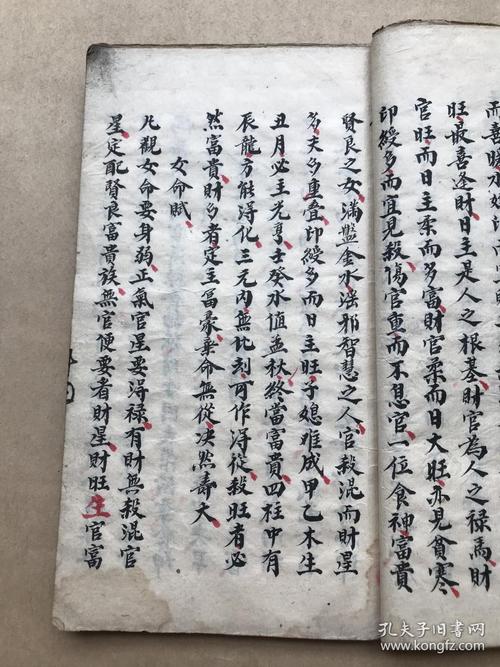 而善勝水好印
旺最喜逢財日主是人之根基財官為人之禄馬財
官旺而日主柔而多富財官柔而日大旺亦見貧寒
印綬多而宜見殺傷官重而不想官一位食神富貴
賢良之女滿盤金水淫邪智慧之人官殺混而財星
多夫多重叠印綬多而日主旺子媳难成甲乙木生
丑月必主光亨壬癸水值孟秋終當富貴四柱中有
辰龍方能淂化三元内無比刻可作淂從殺旺者必
然富貴財多者定主富豪棄命無從决然壽夭
女命賦
凡觀女命要身弱正氣官星要淂禄有財無殺混官
星定配賢良富貴族無官便要看財星財旺生官富
孔夫子旧書网
www.kongfz.com